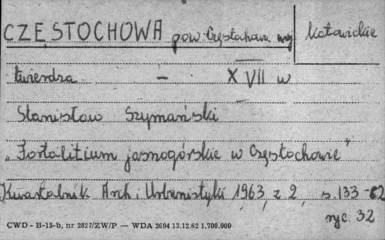 CZĘSTOCHOWA pow. Częstochowa woj. Katowickie
twierdza - XVII w
Stanisław Szymański
„Fortalitium jasnogórskie w Częstochowie"
Kwartalnik Arch. i Urbanistyki 1963, z 2, s. 133-62
ryc. 32
CWD - B-13-b, nr 2827/ZW/P — WDA 2694 13.12.62 1.700.000